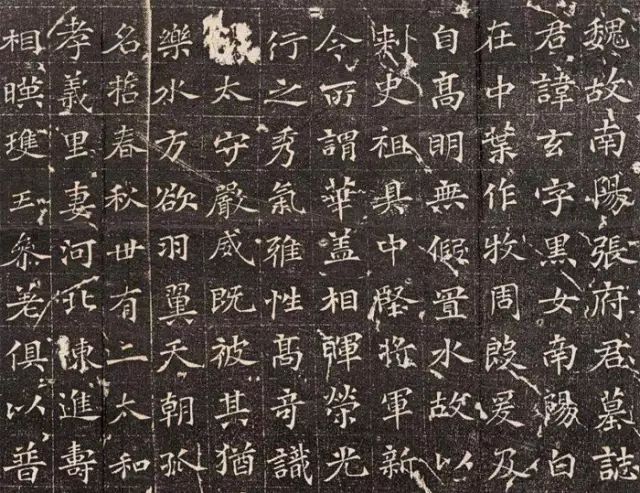 魏故南陽張府君墓誌
君諱玄字黑女南陽白
在中葉作牧周殷爰及
自高明無假置水故以
刺史祖具中堅將軍新
今所謂華盖相暉榮光
行之秀氣雅性高奇識
太守嚴威既被其猶
樂水方欲羽翼天朝抓
名哲春秋卅有二太和
孝義里妻河北陳進壽
相暎瓊玉參差俱以普